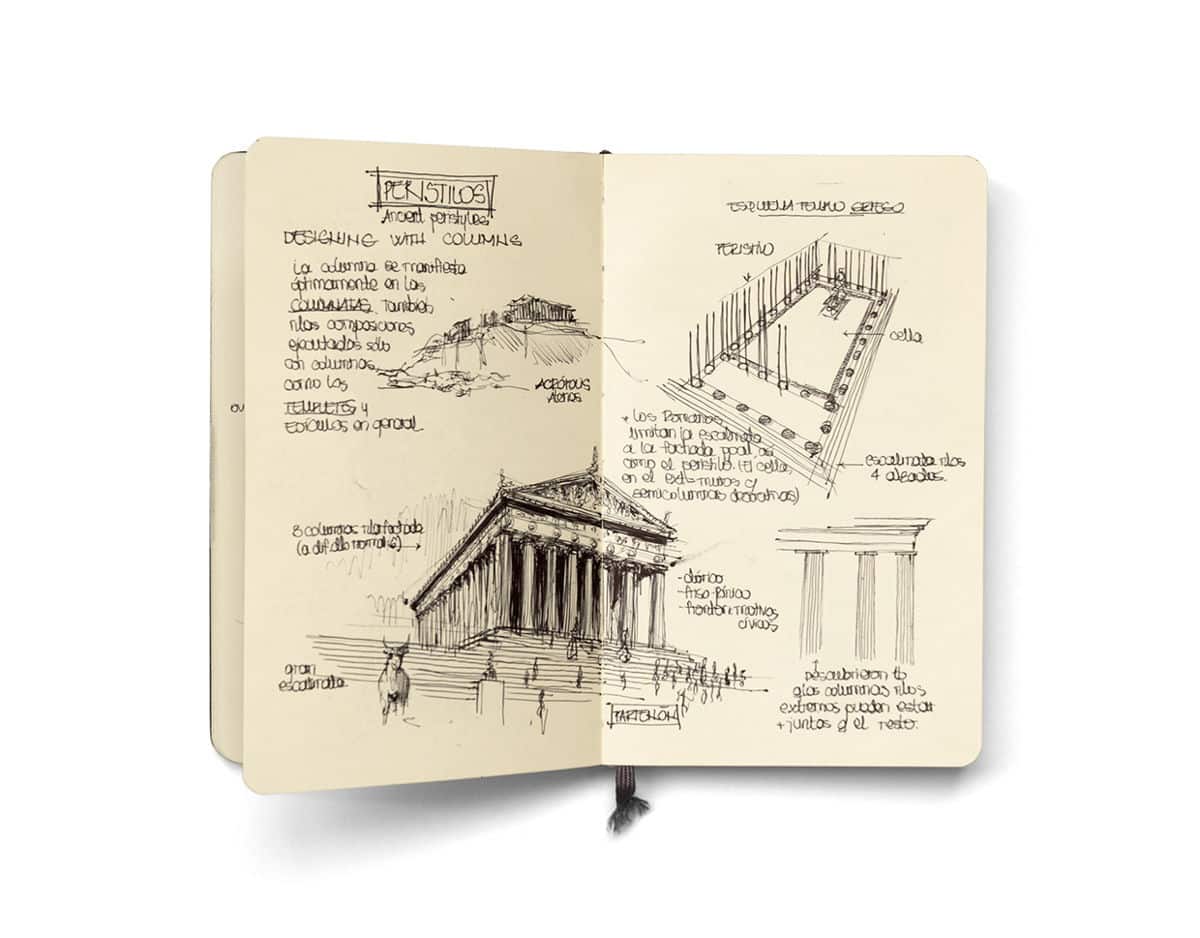 PERISTILOS
Ancient peristyles
DESIGNING WITH COLUMNS
La columna se manifiesta
óptimamente en las
COLUMNATAS. También
n las composiciones
ejecutadas sólo
con columnas,
como los
TEMPLETES y
Edículos en general
ACRÓPOLIS
Atenas
8 columnas n la fachada
(a dif. de lo normal 6)
gran
escalinata
ESQUEMA TEMPLO GRIEGO
PERISTILO
cella
* Los Romanos
limitan la escalinata
a la fachada ppal, así
como el peristilo. (El cella,
en el ext = muros c/
semicolumnas decorativas)
escalinata n los
4 alzados.
- dórico
- friso jónico
- frontón: motivos
cívicos
PARTENÓN
Descubrieron tb
q las columnas n los
extremos pueden estar
+ juntas q el resto.